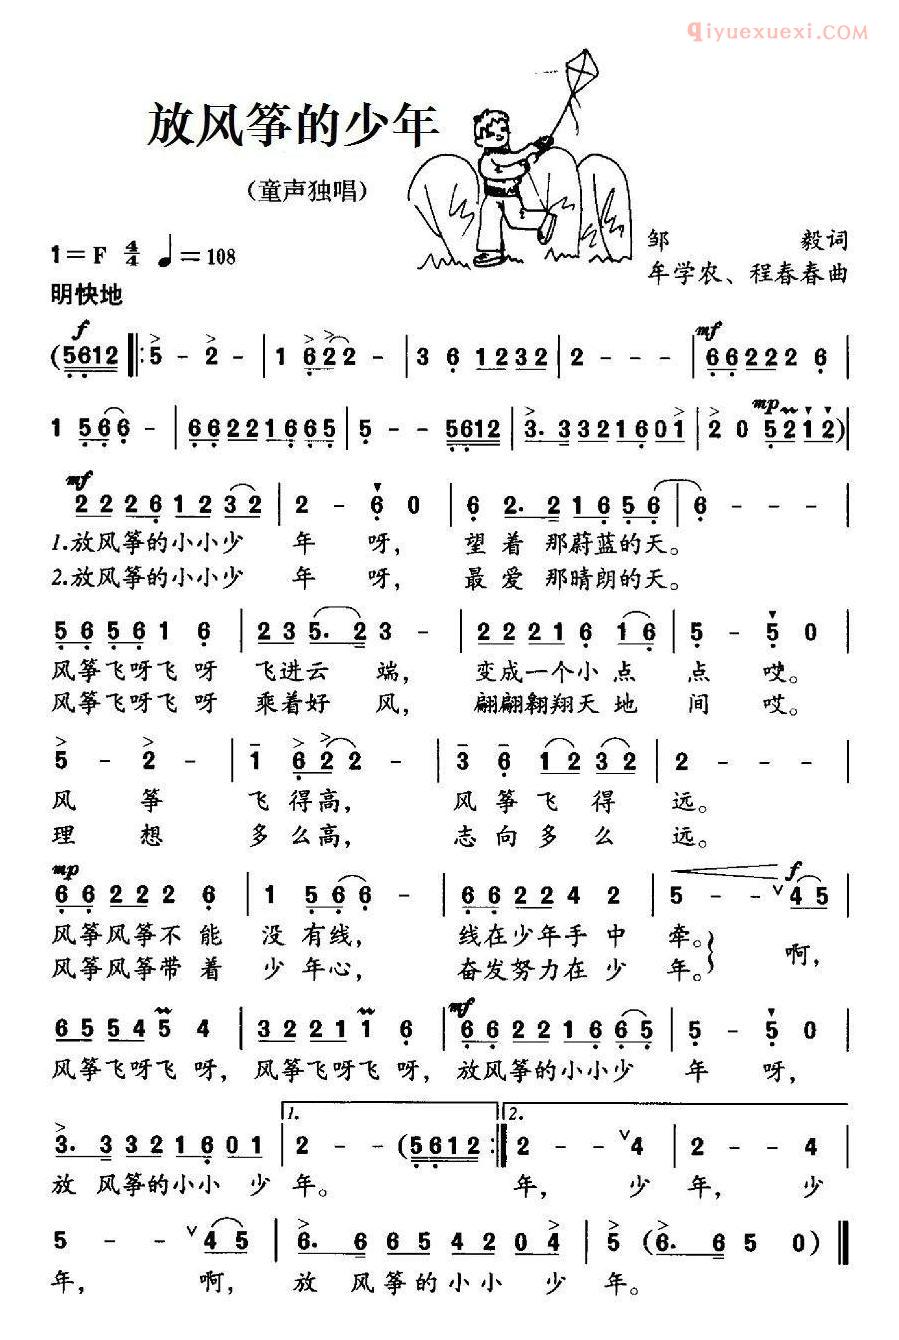 qiyuexuexi.COM
放风筝的少年
（童声独唱）
1=F 4/4 ♩=108
邹 毅词
牟学农、程春春曲
明快地
f mf
(5612 ‖: 5 - 2 - | 1 6 2 2 - | 3 6 1232 | 2 - - - | 66222 6 |
mp
1 5 6 6 - | 66221665 | 5 - - 5612 | 3. 3321601 | 2 0 5212) |
mf
22261232 | 2 - 6 0 | 6 2. 21656 | 6 - - - |
1.放风筝的小小少 年 呀， 望 着 那蔚蓝的天。
2.放风筝的小小少 年 呀， 最 爱 那晴朗的天。
56561 6 | 235. 2 3 - | 22216 16 | 5 - 5 0 |
风筝飞呀飞 呀 飞进云 端， 变成一个小 点 点 哎。
风筝飞呀飞 呀 乘着好 风， 翩翩翱翔天 地 间 哎。
5 - 2 - | 1 6 2 2 - | 3 6 1232 | 2 - - - |
风 筝 飞 得高， 风 筝 飞 得 远。
理 想 多 么高， 志 向 多 么 远。
mp f
66222 6 | 1 5 6 6 - | 66224 2 | 5 - - ∨ 45 |
风筝风筝不 能 没 有线， 线在少年手 中 牵。 啊，
风筝风筝带 着 少 年心， 奋发努力在 少 年。
mf
65545 4 | 32211 6 | 66221665 | 5 - 5 0 |
风筝飞呀飞 呀， 风筝飞呀飞 呀， 放风筝的小小少 年 呀，
1. 2.
3. 3321601 | 2 - - (5612 :‖ 2 - - ∨ 4 | 2 - - 4 |
放 风筝的小小 少 年。 年， 少 年， 少
5 - - ∨ 45 | 6. 6654204 | 5 (6. 6 5 0) ‖
年， 啊， 放 风筝的小小 少 年。